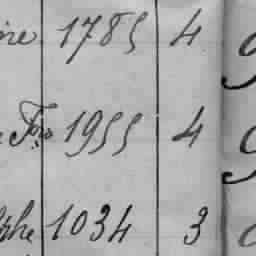 ine 1785 4
Fço 1955 4
lphe 1034 3